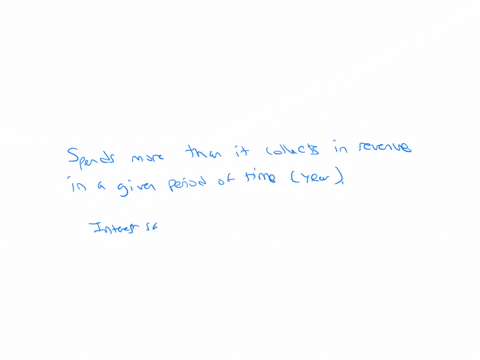 Spends more than it collects in revenue
in a given period of time (year).
Interest